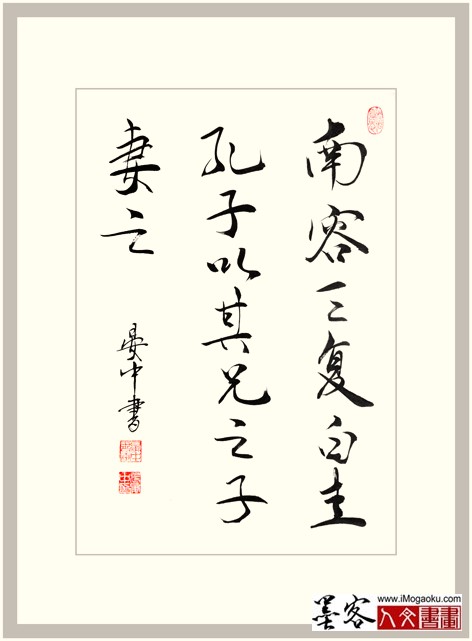 南容三复白圭
孔子以其兄之子
妻之
晏中書
www.iMogaoku.com
墨客
人文書畫